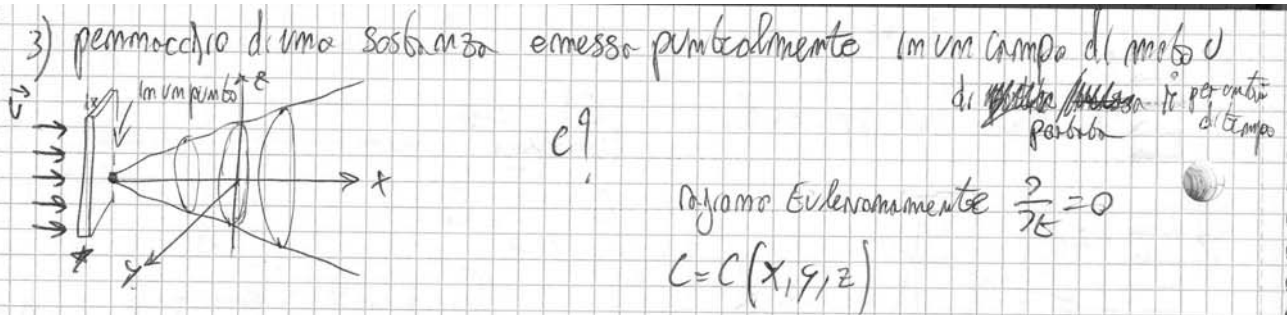 3) pennacchio di una sostanza emessa puntualmente in un campo di moto U
di portata ṁ per unità di tempo
in un punto
z
U
c?
x
ragiono Eulerianamente ∂/∂t = 0
y
C = C(x, y, z)